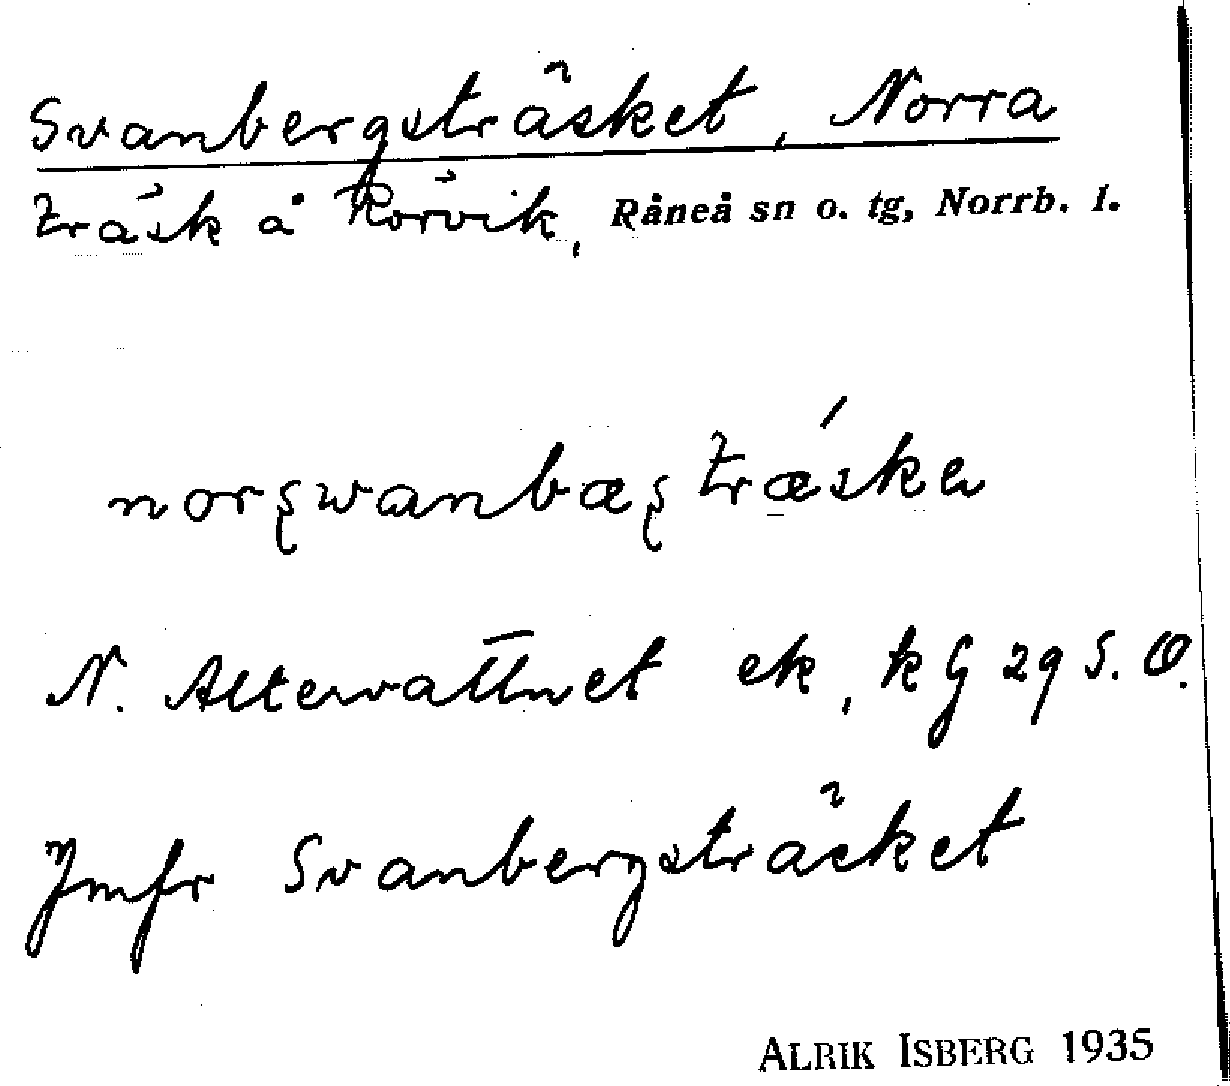 Svanbergsträsket, Norra
träsk å Rörvik, Råneå sn o. tg, Norrb. l.
norʂwanbæʂtræska
N. Altervattnet ek, kG 29 S. O.
Jmfr Svanbergsträsket
ALRIK ISBERG 1935